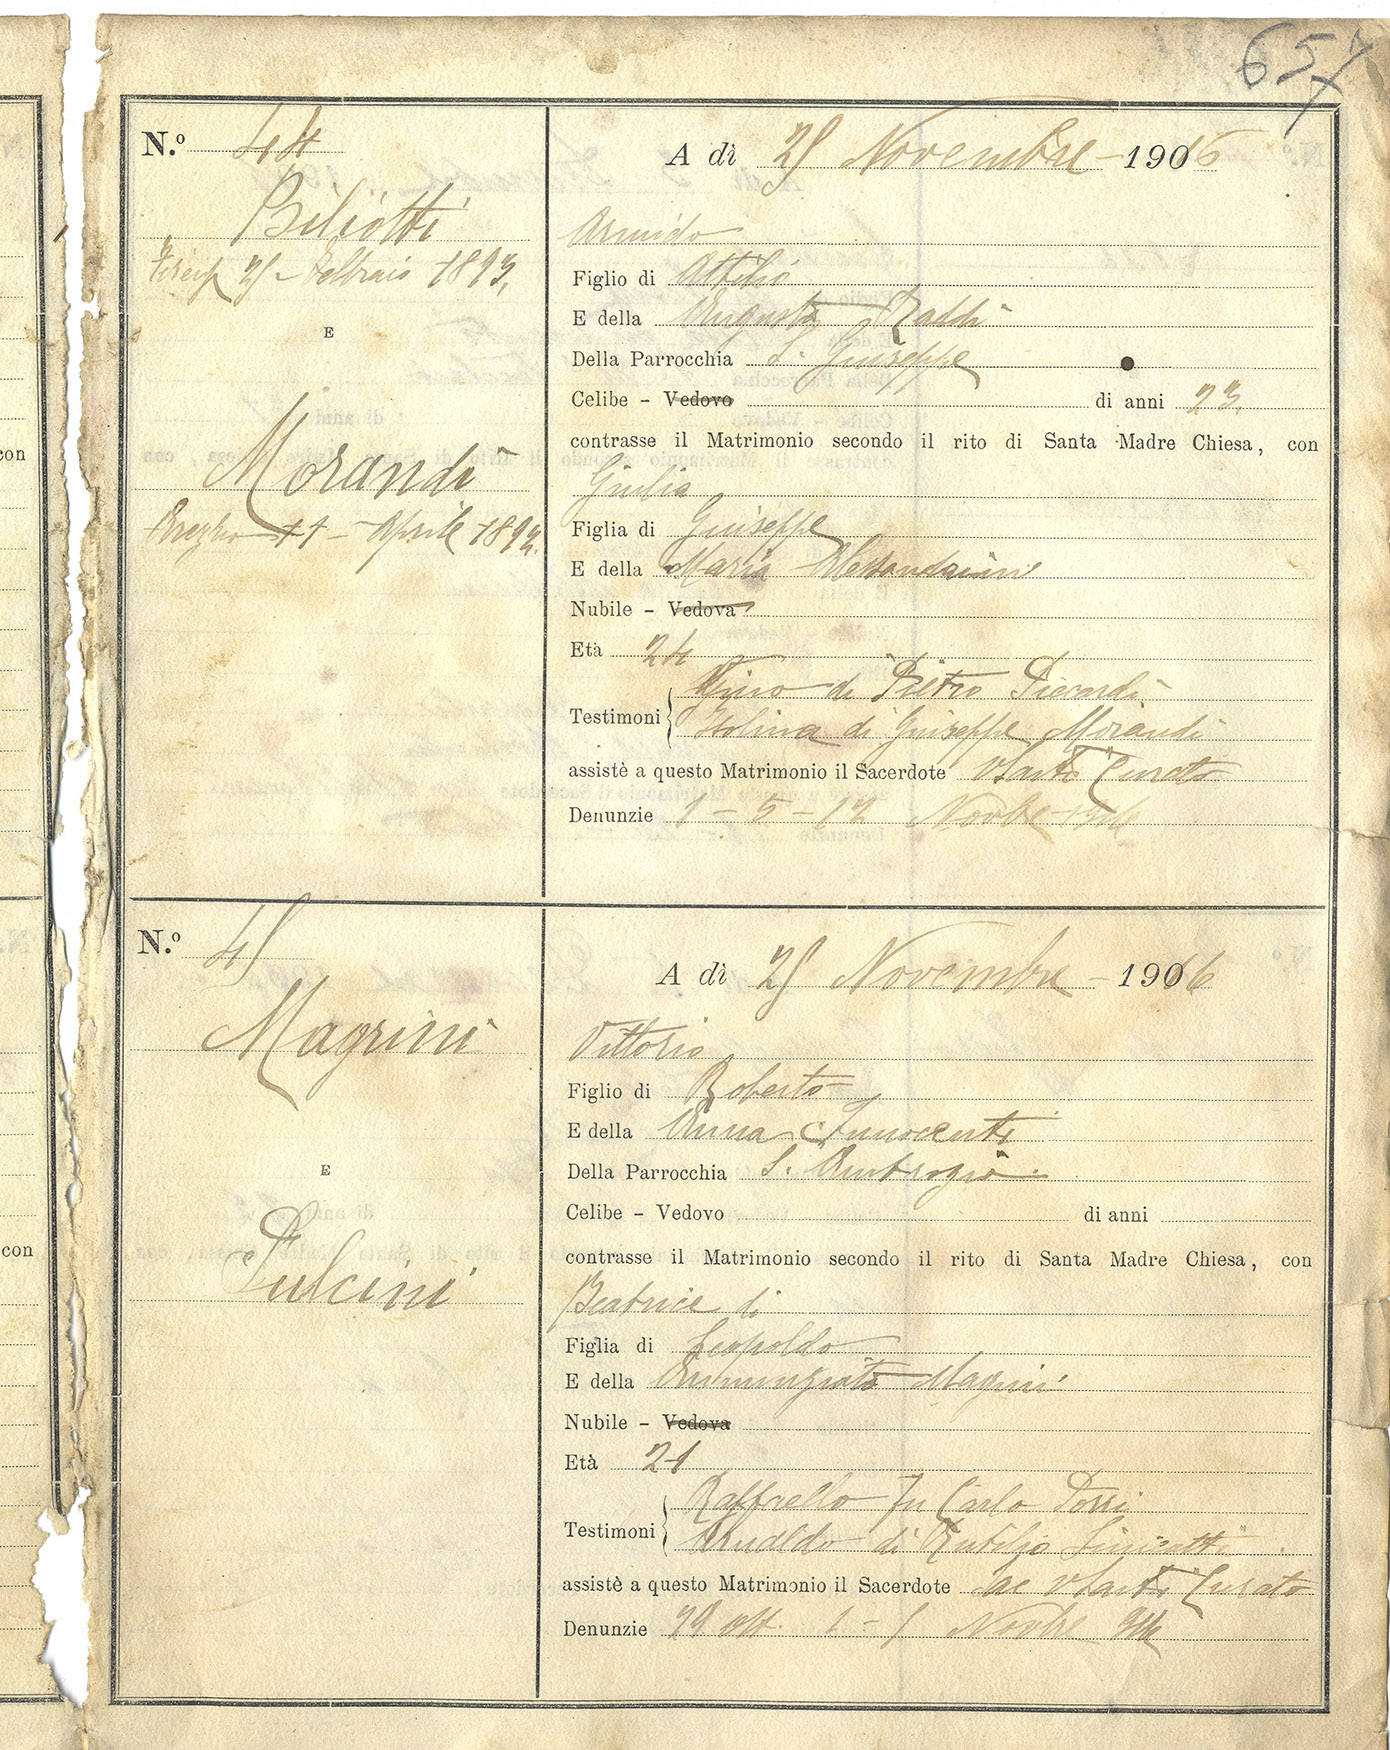 657
N.º 44
Biliotti
Febbraio 1893.
E
Morandi
11 - Aprile 1892.
A dì 25 Novembre - 1906 16
Armido
Figlio di Attilio
E della Augusta Raddi
Della Parrocchia S. Giuseppe
Celibe - Vedovo di anni 23.
contrasse il Matrimonio secondo il rito di Santa Madre Chiesa, con
Giulia
Figlia di Giuseppe
E della Maria Alessandrini
Nubile - Vedova
Età 24
Gino di Pietro Piccardi
Testimoni Isolina di Giuseppe Morandi
assistè a questo Matrimonio il Sacerdote Curato
Denunzie 1 - 5 - 12 Novbre 1916
N.º 45
Magrini
E
Pulcini
A dì 25 Novembre - 1906 16
Vittorio
Figlio di Roberto
E della Anna Innocenti
Della Parrocchia S. Ambrogio
Celibe - Vedovo di anni
contrasse il Matrimonio secondo il rito di Santa Madre Chiesa, con
Beatrice di
Figlia di Leopoldo
E della Annunziata Magrini
Nubile - Vedova
Età 21
Raffaello fu Carlo
Testimoni Arnaldo di Rutilio
assistè a questo Matrimonio il Sacerdote Sac Curato
Denunzie 29 ott. 1 - 5 Novbre 916
con
con